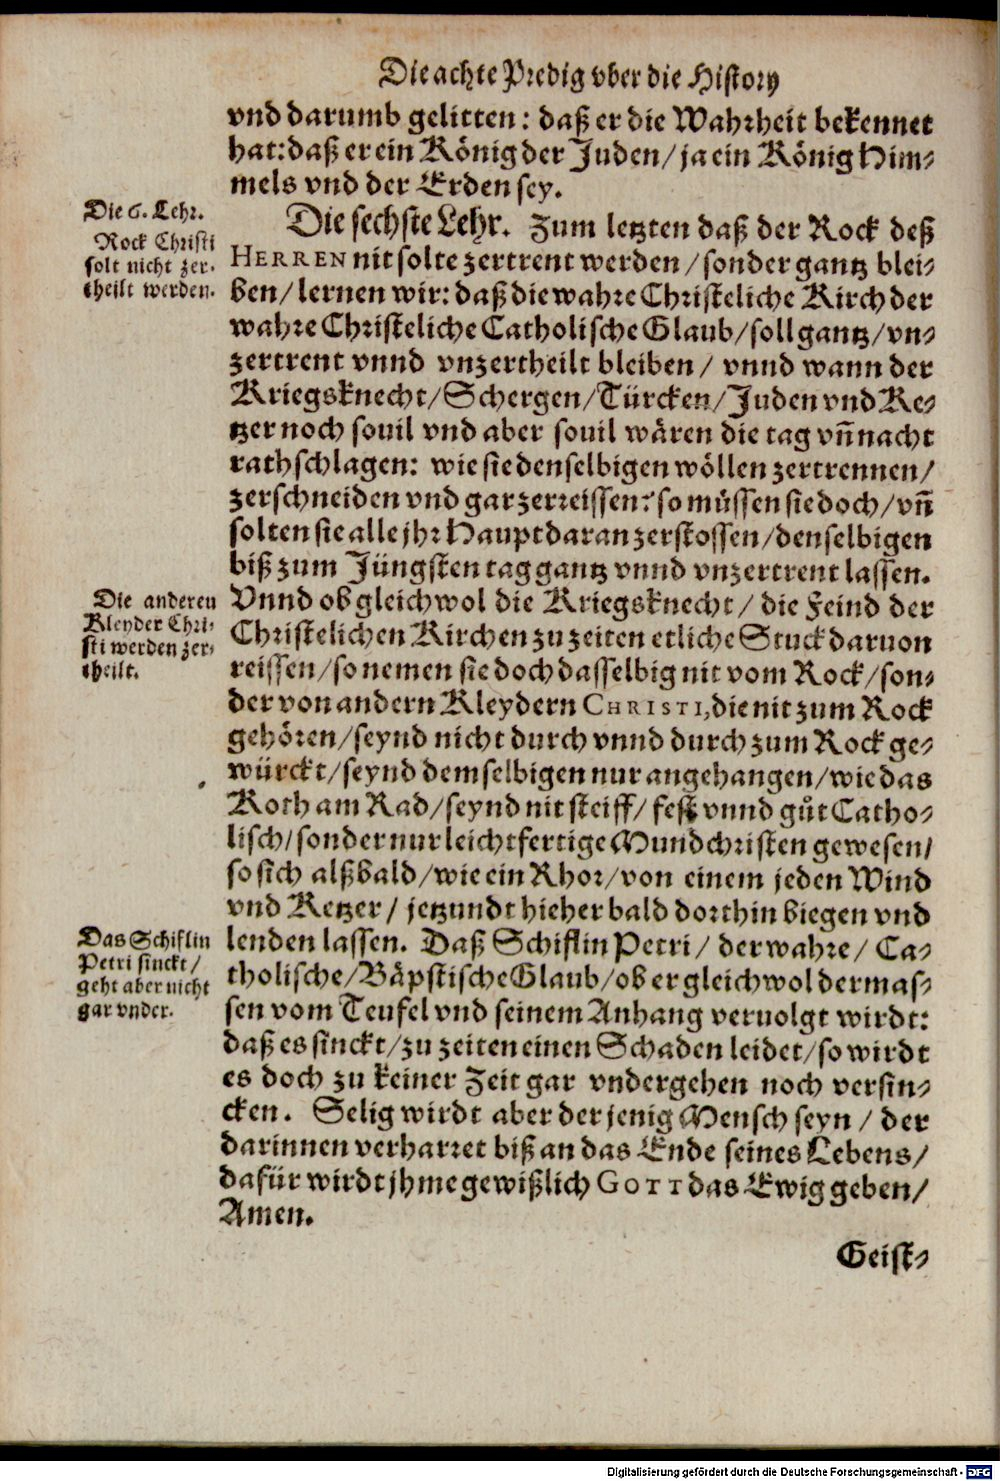 Die achte Predig vber die History
vnd darumb gelitten: daß er die Wahrheit bekennet
hat: daß er ein König der Juden/ ja ein König Him-
mels vnd der Erden sey.
Die 6. Lehr.
Rock Christi
solt nicht zer-
theilt werden.
Die sechste Lehr. Zum letzten daß der Rock deß
HERREN nit solte zertrent werden/ sonder gantz blei-
ben/ lernen wir: daß die wahre Christeliche Kirch der
wahre Christeliche Catholische Glaub/ soll gantz/ vn-
zertrent vnnd vnzertheilt bleiben/ vnnd wann der
Kriegsknecht/ Schergen/ Türcken/ Juden vnd Ke-
tzer noch souil vnd aber souil wären die tag vñ nacht
rathschlagen: wie sie denselbigen wöllen zertrennen/
zerschneiden vnd gar zerreissen: so müssen sie doch/ vñ
solten sie alle jhr Haupt daran zerstossen/ denselbigen
biß zum Jüngsten tag gantz vnnd vnzertrent lassen.
Die anderen
Kleyder Chri-
sti werden zer-
theilt.
Vnnd ob gleichwol die Kriegsknecht/ die Feind der
Christelichen Kirchen zu zeiten etliche Stuck daruon
reissen/ so nemen sie doch dasselbig nit vom Rock/ son-
der von andern Kleydern CHRISTI, die nit zum Rock
gehören/ seynd nicht durch vnnd durch zum Rock ge-
würckt/ seynd demselbigen nur angehangen/ wie das
Koth am Rad/ seynd nit steiff/ fest vnnd gůt Catho-
lisch/ sonder nur leichtfertige Mundchristen gewesen/
so sich alßbald/ wie ein Rhor/ von einem jeden Wind
vnd Ketzer/ jetzundt hieher bald dorthin biegen vnd
lenden lassen. Daß Schiflin Petri/ der wahre/ Ca-
Das Schiflin
Petri sinckt/
geht aber nicht
gar vnder.
tholische/ Bäpstische Glaub/ ob er gleichwol dermas-
sen vom Teufel vnd seinem Anhang veruolgt wirdt:
daß es sinckt/ zu zeiten einen Schaden leidet/ so wirdt
es doch zu keiner Zeit gar vndergehen noch versin-
cken. Selig wirdt aber der jenig Mensch seyn/ der
darinnen verharret biß an das Ende seines Lebens/
dafür wirdt jhme gewißlich GOTT das Ewig geben/
Amen.
Geist-
Digitalisierung gefördert durch die Deutsche Forschungsgemeinschaft - DFG